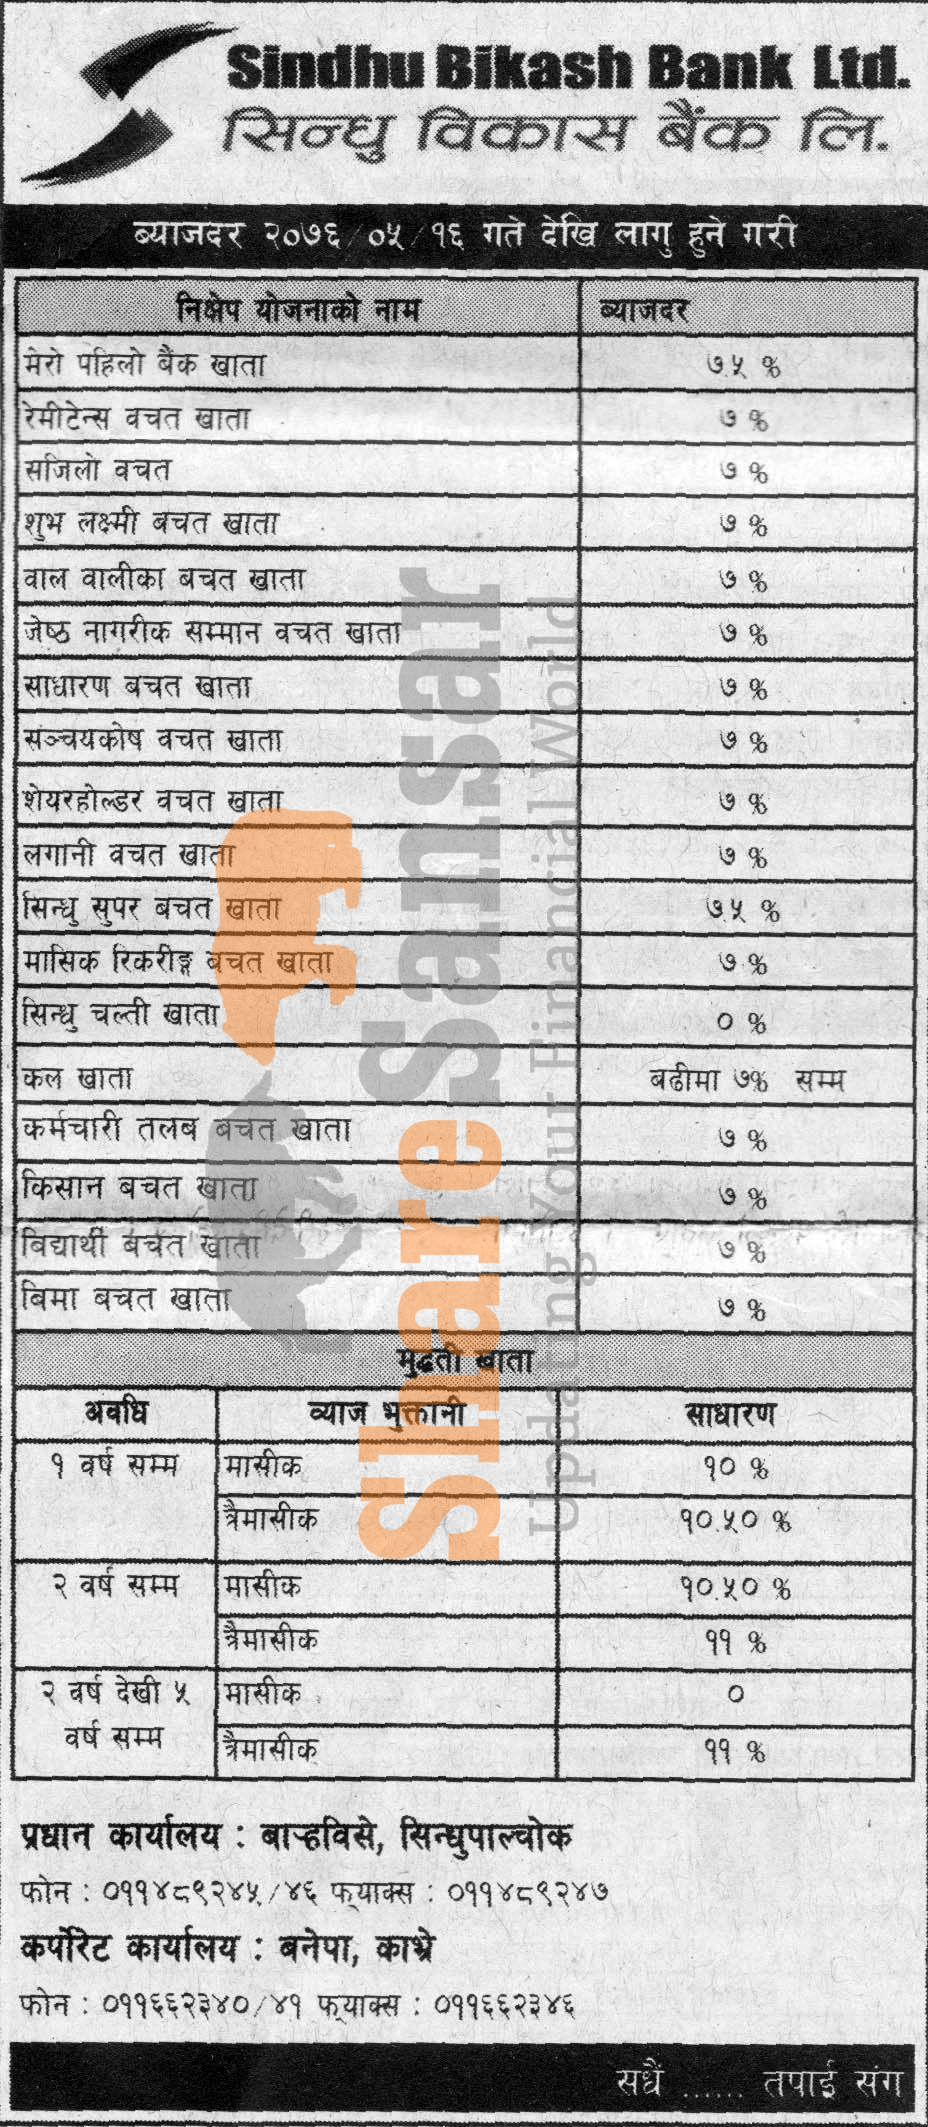 Sindhu Bikash Bank Ltd.
सिन्धु विकास बैंक लि.
ब्याजदर २०७६/०५/१६ गते देखि लागु हुने गरी
निक्षेप योजनाको नाम ब्याजदर
मेरो पहिलो बैंक खाता ७.५ %
रेमीटेन्स वचत खाता ७ %
सजिलो वचत ७ %
शुभ लक्ष्मी बचत खाता ७ %
वाल वालीका बचत खाता ७ %
जेष्ठ नागरीक सम्मान वचत खाता ७ %
साधारण बचत खाता ७ %
सञ्चयकोष वचत खाता ७ %
शेयरहोल्डर वचत खाता ७ %
लगानी वचत खाता ७ %
सिन्धु सुपर बचत खाता ७.५ %
मासिक रिकरीङ्ग बचत खाता ७ %
सिन्धु चल्ती खाता ० %
कल खाता बढीमा ७% सम्म
कर्मचारी तलब बचत खाता ७ %
किसान बचत खाता ७ %
बिद्यार्थी बचत खाता ७ %
बिमा बचत खाता ७ %
मुद्धती खाता
अवधि व्याज भुक्तानी साधारण
१ वर्ष सम्म मासीक १० %
त्रैमासीक १०.५० %
२ वर्ष सम्म मासीक १०.५० %
त्रैमासीक ११ %
२ वर्ष देखी ५ मासीक ०
वर्ष सम्म त्रैमासीक ११ %
प्रधान कार्यालय : बाऱ्हविसे, सिन्धुपाल्चोक
फोन : ०११४८९२४५/४६ फ्याक्स : ०११४८९२४७
कर्पोरेट कार्यालय : बनेपा, काभ्रे
फोन : ०११६६२३४०/४१ फ्याक्स : ०११६६२३४६
सधैं ...... तपाई संग
ShareSansar
Updating Your Financial World